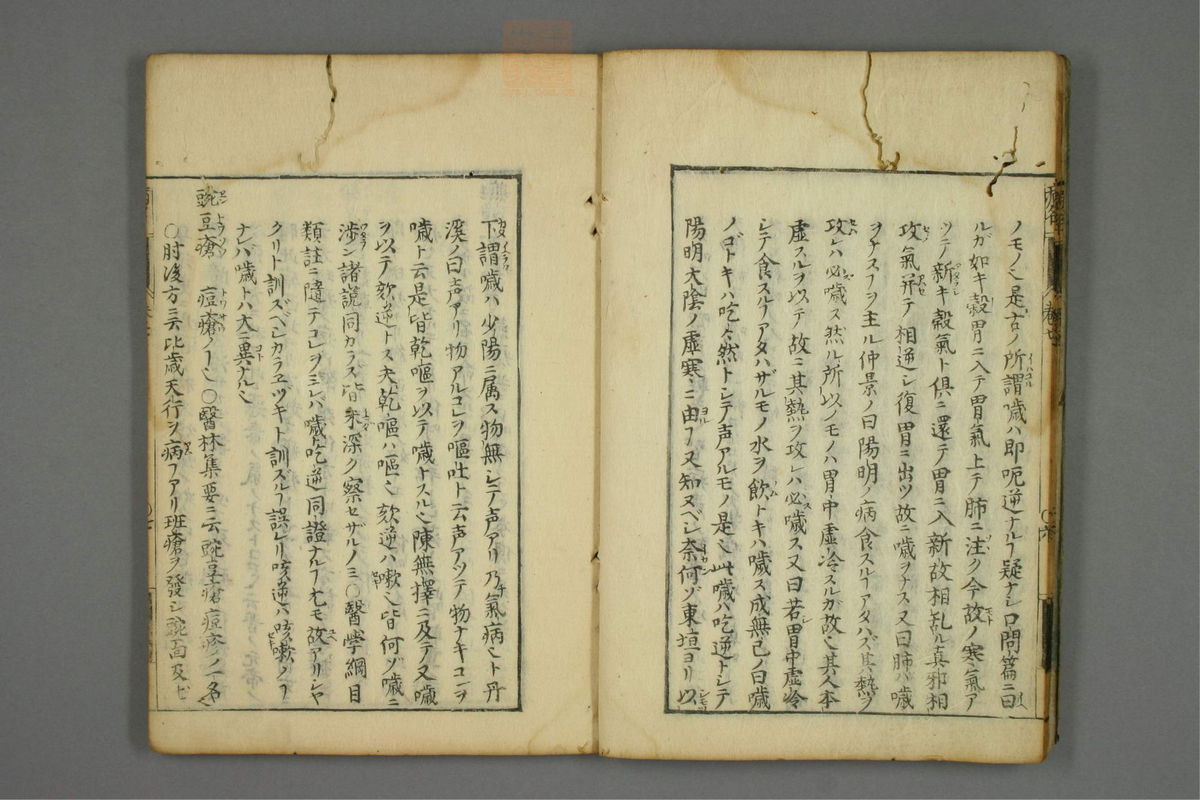 ノモノ也是古ノ所謂噦ハ即呃逆ナルヿ疑ナシ口問篇ニ曰
ルガ如キ穀胃ニ入テ胃氣上テ肺ニ注ク今故ノ寒氣ア
ツテ新キ穀氣ト俱ニ還テ胃ニ入新故相乱ル真邪相
攻氣并テ相逆シ復胃ニ出ツ故ニ噦ヲナス又曰肺ハ噦
ヲナスヿヲ主ル仲景ノ曰陽明ノ病食スルヿアタハズ其熱ヲ
攻レハ必噦ス然ル所以ノモノハ胃中虚冷スルガ故也其人本
虚スルヲ以テ故ニ其熱ヲ攻レハ必噦ス又曰若胃中虚冷
シテ食スルヿアタハザルモノ水ヲ飲トキハ噦ス成無己ノ曰噦
ノゴトキハ吃々然トシテ声アルモノ是也此噦ハ吃逆トシテ
陽明大陰ノ虚寒ニ由ヿ又知ヌベシ奈何ゾ東垣ヨリ以
下謂噦ハ少陽ニ属ス物無シテ声アリ乃氣病也ト丹
溪ノ曰声アリ物アルコレヲ嘔吐ト云声アツテ物ナキコレヲ
噦ト云是皆乾嘔ヲ以テ噦トスル也陳無擇ニ及テ又噦
ヲ以テ欬逆トス夫乾嘔ハ嘔也欬逆ハ嗽也皆何ゾ噦ニ
渉ン諸説同カラス皆未深ク察セザルノミ○醫学綱目
類註ニ隨テコレヲミレハ噦吃逆同證ナルヿ尤モ故アリシヤ
クリト訓ズベシカラヱヅキト訓ズルヿ誤レリ咳逆ハ咳嗽ノヿ
ナレバ噦トハ大ニ異ナル也
豌豆瘡 痘瘡ノヿ也○醫林集要ニ云豌豆瘡痘疹ノ一名
○肘後方ニ云比歳天行ヲ病ヿアリ斑瘡ヲ發シ頭面及ヒ